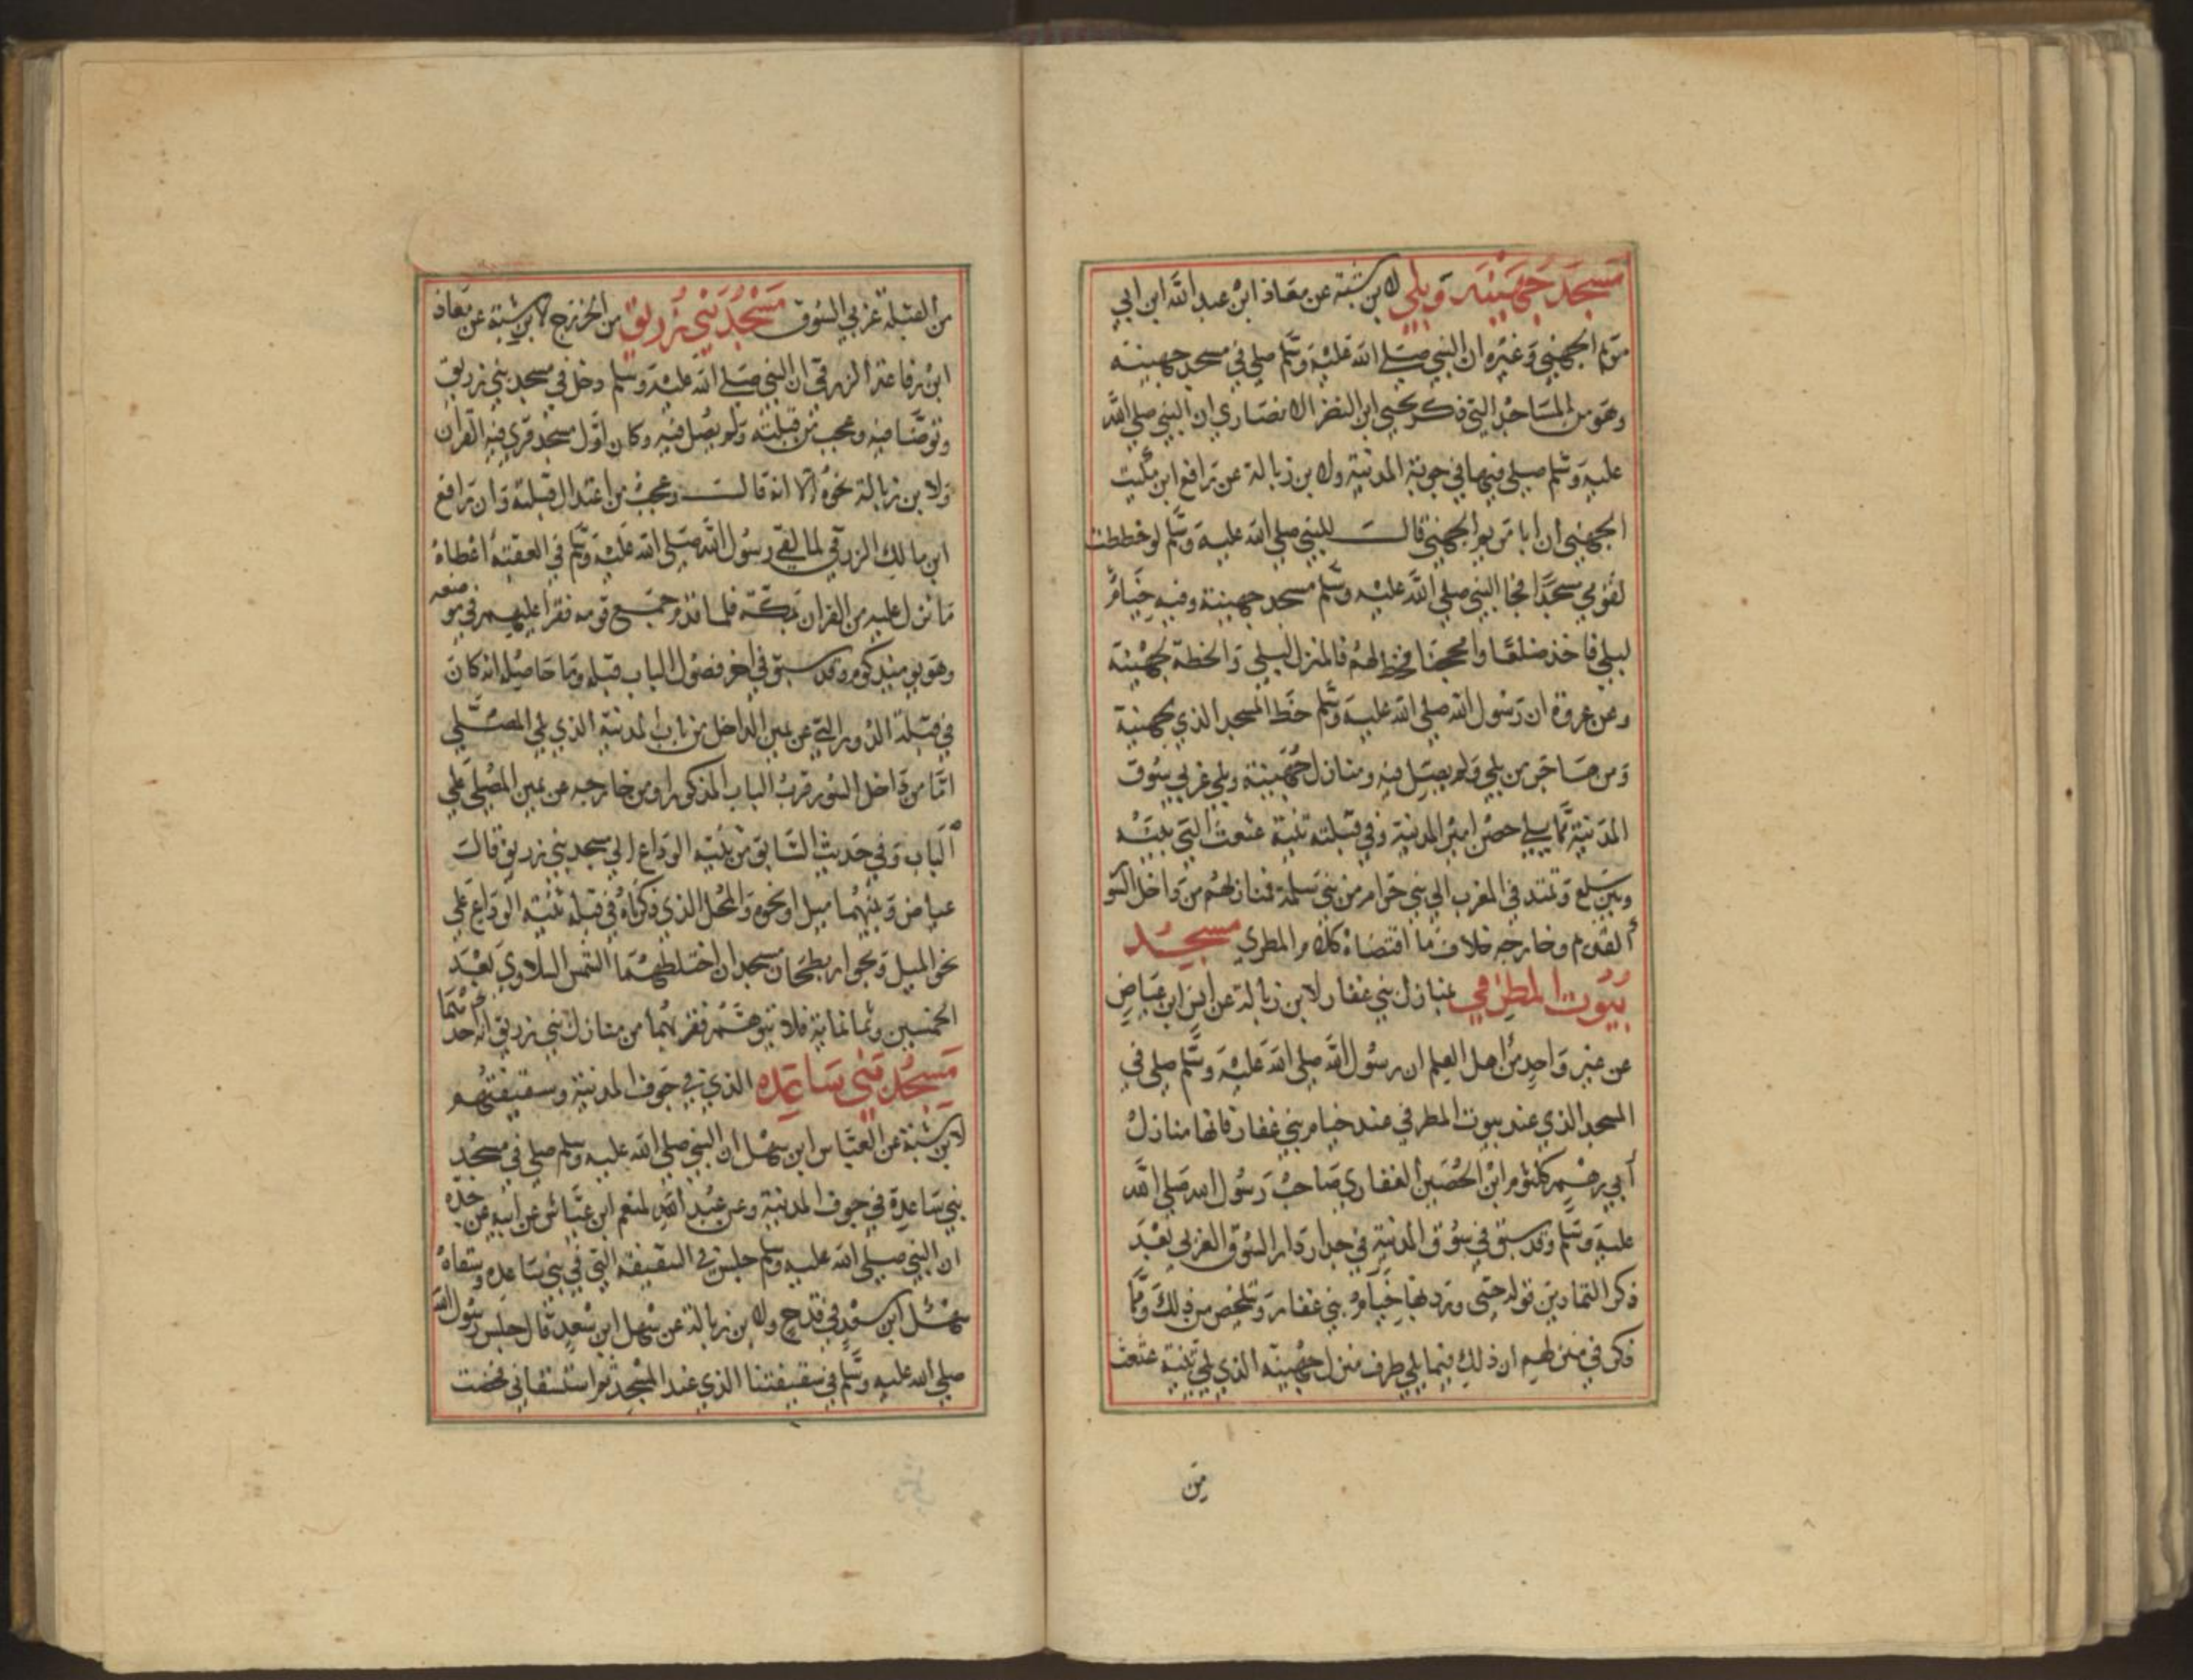 مسجد جهينه وبلي لابن شبته عن معاذ ابن عبد الله ابن ابي
مريم الجهني وغيره ان النبي صلي الله عليه وسلم صلي في مسجد جهينه
وهو من المساجد التي ذكر يحيي ابن النضر الانصاري ان النبي صلي الله
عليه وسلم صلي فيها في جوبة المدنية ولابن زبالة عن رافع ابن مكيث
الجهني ان ابا مريم الجهني قال للنبي صلي الله عليه وسلم لو خططت
لقومي مسجدا فجا النبي صلي الله عليه وسلم مسجد جهينة وفيه خيام
لبلي فاخذ ضلعا او محجنا فخط لهم فالمنزل لبلي والخطة لجهينة
وعن عروة ان رسول الله صلي الله عليه وسلم خط المسجد الذي لجهنية
ومن هاجر من بلي ولم يصل فيه ومنازل جهينة وبلي غربي سوق
المدنية مما يلي حصن امير المدنية وفي قبلته ثنية عثعث التي بينه
وبين سلع وتمتد في المغرب الي بني حرام من بني سلمة فمنازلهم من داخل السو
القديم وخارجه خلاف ما اقتضاه كلام المطري مسجد
بيوت المطرفي بمنازل بني غفار لابن زبالة عن انس ابن عياض
عن غير واحد من اهل العلم ان رسول الله صلي الله عليه وسلم صلي في
المسجد الذي عند بيوت المطرفي عند خيام بني غفار فانها منازل
أبي رهم كلثوم ابن الحصين الغفاري صاحب رسول الله صلي الله
عليه وسلم وقد سبق في سوق المدنية في جدار دار السوق الغربي بعد
ذكر التمارين قوله حتي وردبها خيام بني غفار وتلخص من ذلك ومما
ذكر في منزلهم ان ذلك فيما يلي طرف منزل جهينة الذي يلي ثنية عثعث
من
من القبلة غربي السوق مسجد بني زريق من الخزرج لابن شبة عن معاذ
ابن رفاعة الزرقي ان النبي صلي الله عليه وسلم دخل في مسجد بني زريق
وتوضا فيه وعجب من قبلته ولم يصل فيه وكان اول مسجد قري فيه القران
ولابن زبالة نحوه الا انه قال وعجب من اعتدال قبلته وان رافع
ابن مالك الزرقي لما لقي رسول الله صلي الله عليه وسلم في العقبة اعطاه
ما نزل عليه من القران بمكة فلما قدم جمع قومه فقرا عليهم في موضعه
وهو يوميذ كوم وقد سبق في اخر فصول الباب قبله وما حاصله انه كان
في قبلة الدور التي عن يمين الداخل من باب المدنية الذي يلي المصلي
اما من داخل السور قرب الباب المذكور او من خارجه عن يمين المصلي علي
الباب وفي حديث السابق من ثنية الوداع الي مسجد بني زريق قال
عياض وبينهما ميل او نحوه والمحل الذي ذكرناه في قبلة ثنية الوداع علي
نحو الميل وبجوار بطحان مسجدان اختلطهما الشمس السلاوي بعد
الخمسين وثمانماية فلا يتوهم فقربهما من منازل بني زريق انه احدهما
مسجد بني ساعده الذي في جوف المدنية وسقيفتهم
لابن شبة عن العباس ابن سهل ان النبي صلي الله عليه وسلم صلي في مسجد
بني ساعدة في جوف المدنية وعن عبد المنعم ابن عباس عن ابيه عن جده
ان النبي صلي الله عليه وسلم جلس في السقيفة التي في بني ساعدة وسقاه
سهل ابن سعد في قدح ولابن زبالة عن سهل ابن سعد قال جلس رسول الله
صلي الله عليه وسلم في سقيفتنا الذي عند المسجد ثم استسقاني فخضت